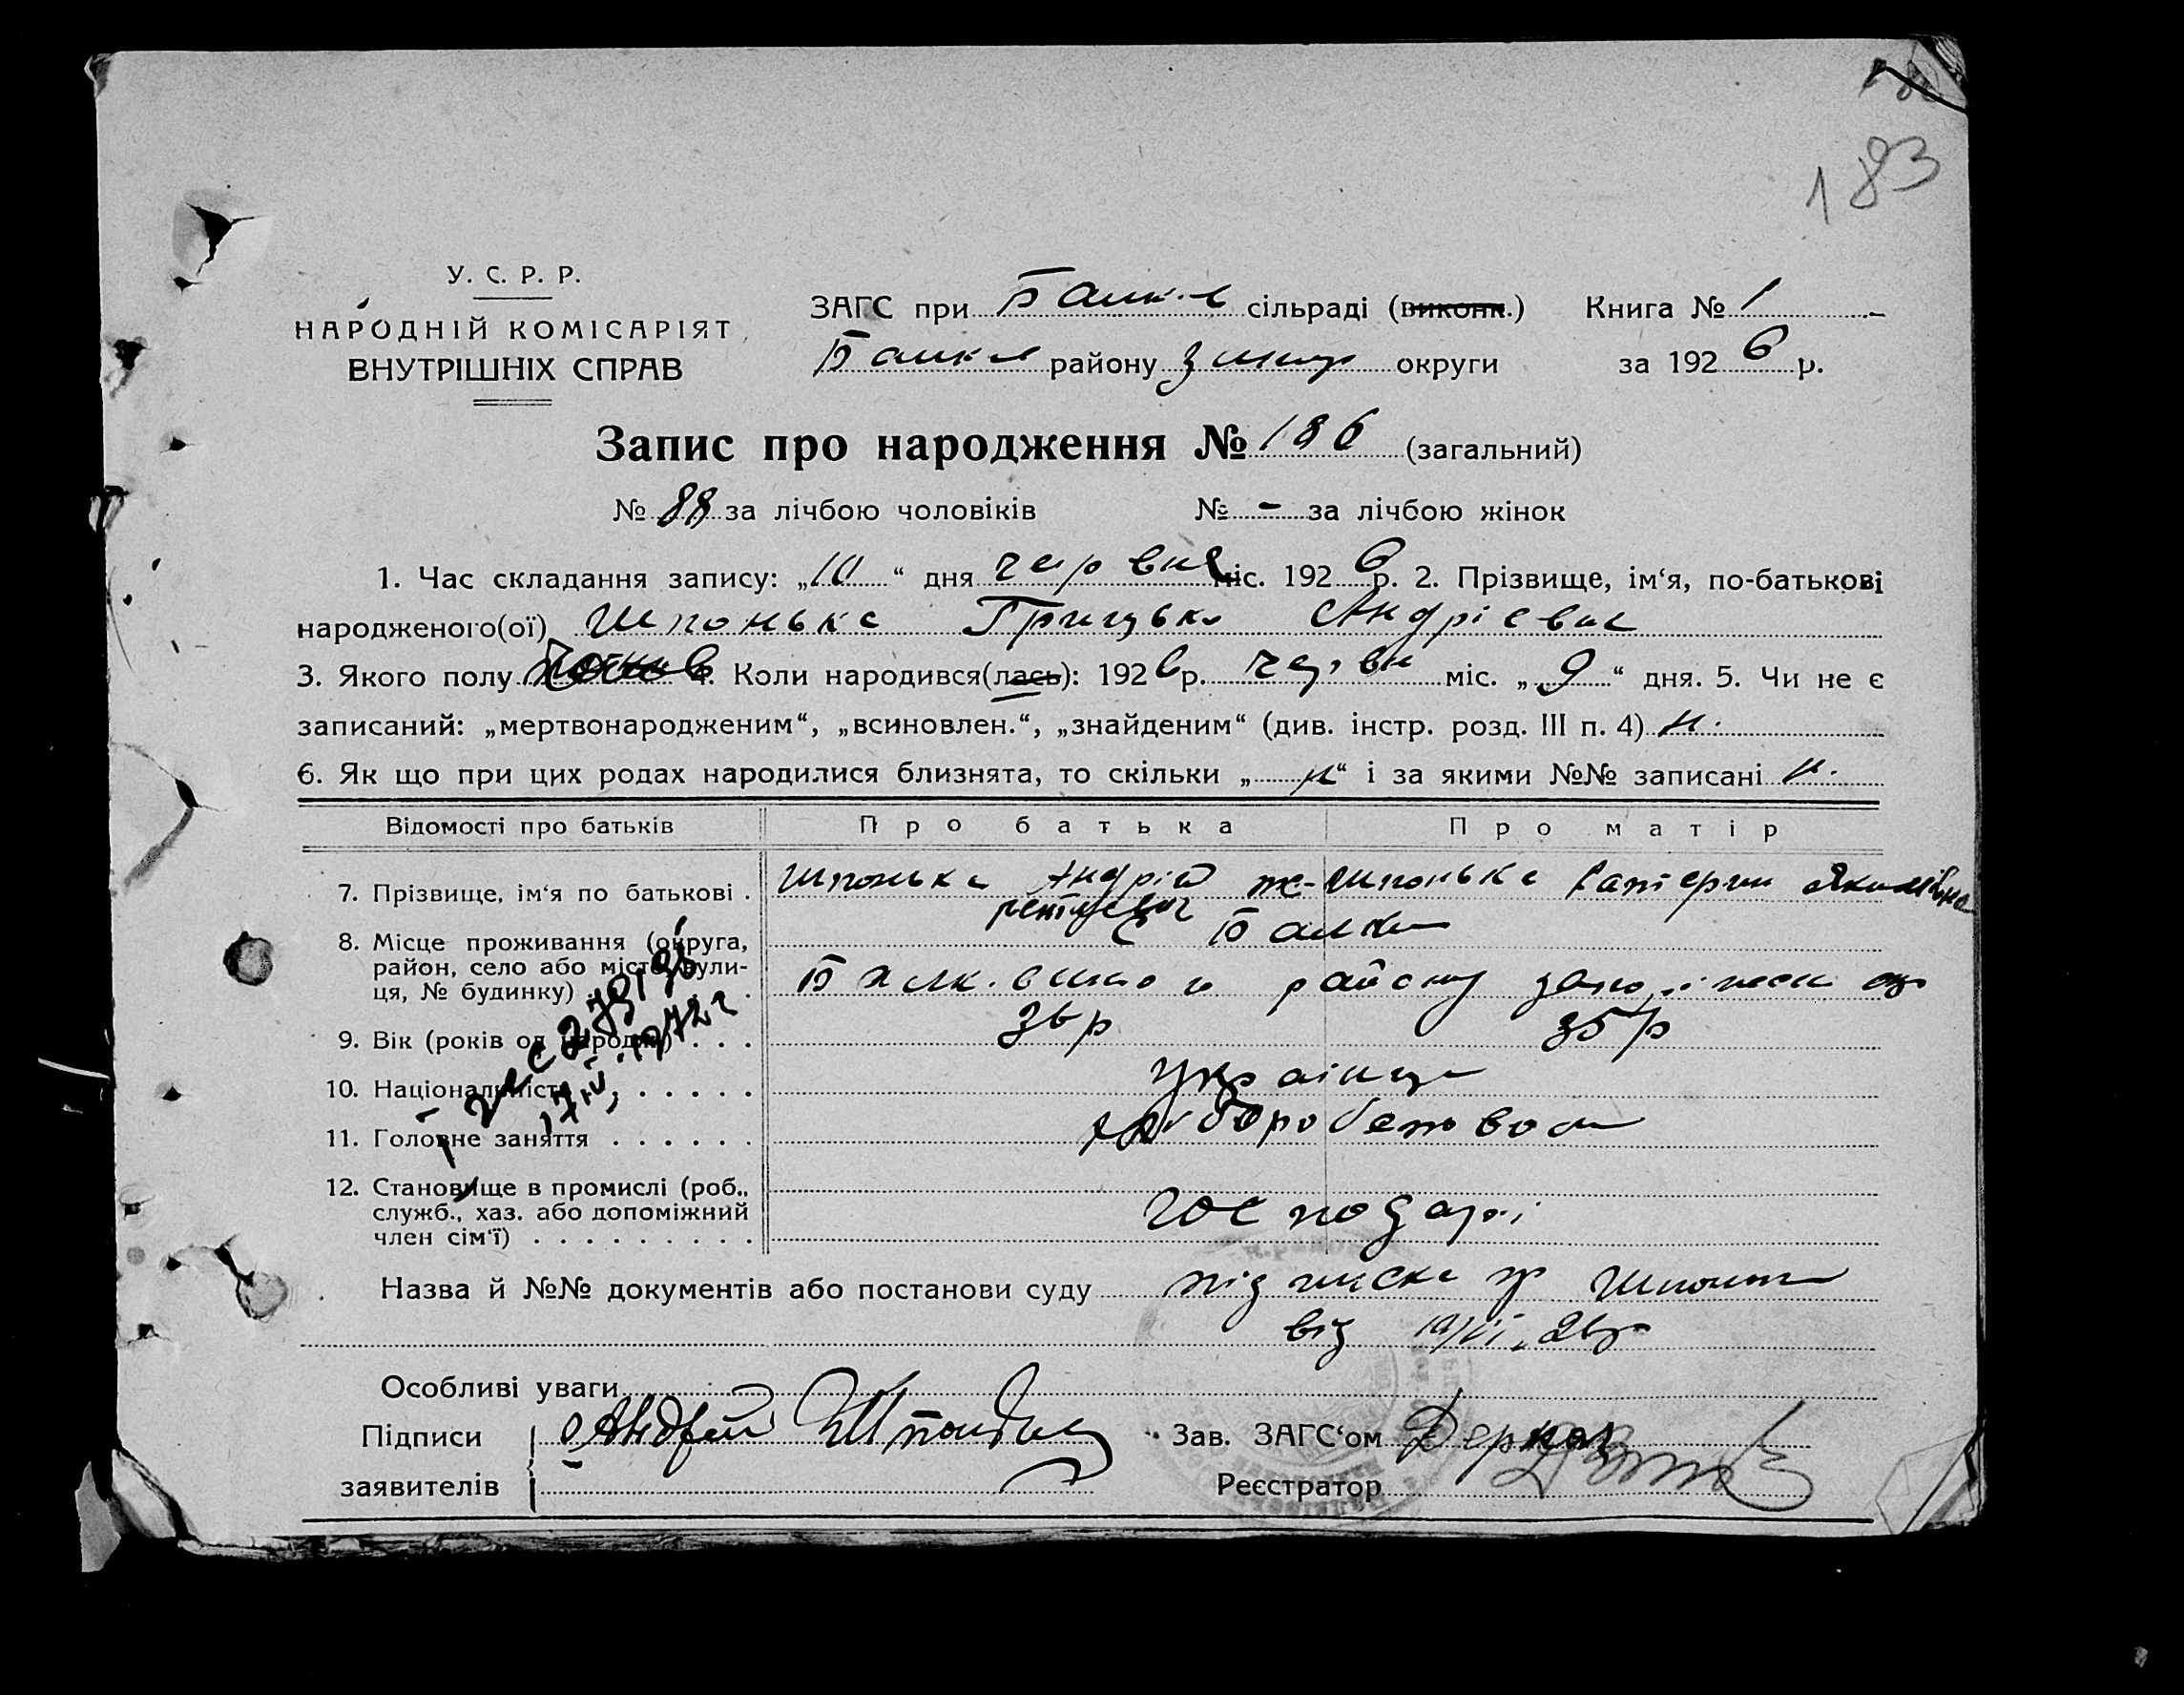 183
У. С. Р. Р.
НАРОДНІЙ КОМІСАРІЯТ
ВНУТРІШНІХ СПРАВ
ЗАГС при сільраді (виконк.) Книга № 1
району округи за 1926 р.
Запис про народження № 186 (загальний)
№ 88 за лічбою чоловіків № - за лічбою жінок
1. Час складання запису: „10“ дня червня міс. 1926 р. 2. Прізвище, ім‘я, по-батькові
народженого(ої) Шпонька Грицько Андрієвич
3. Якого полу 4. Коли народився(лась): 1926 р. червн міс. „9“ дня. 5. Чи не є
записаний: „мертвонародженим“, „всиновлен.“, „знайденим“ (див. інстр. розд. III п. 4) н.
6. Як що при цих родах народилися близнята, то скільки „н“ і за якими №№ записані н.
Відомості про батьків Про батька Про матір
7. Прізвище, ім‘я по батькові . Шпонька Андрій Шпонька Катерин Якимівна
8. Місце проживання (округа, Балки
район, село або місто, вули-
ця, № будинку) району
9. Вік (років од народж.) . . . 36 р 35 р
10. Національність . . . . . українці
17.IV.1972 г
11. Головне заняття . . . . . . хліборобство
12. Становище в промислі (роб.,
служб., хаз. або допоміжний господарі
член сім‘ї) . . . . . . . . .
Назва й №№ документів або постанови суду підписка гр
від
Особливі уваги
Підписи Андрій Зав. ЗАГС‘ом Деркач
заявителів Реєстратор